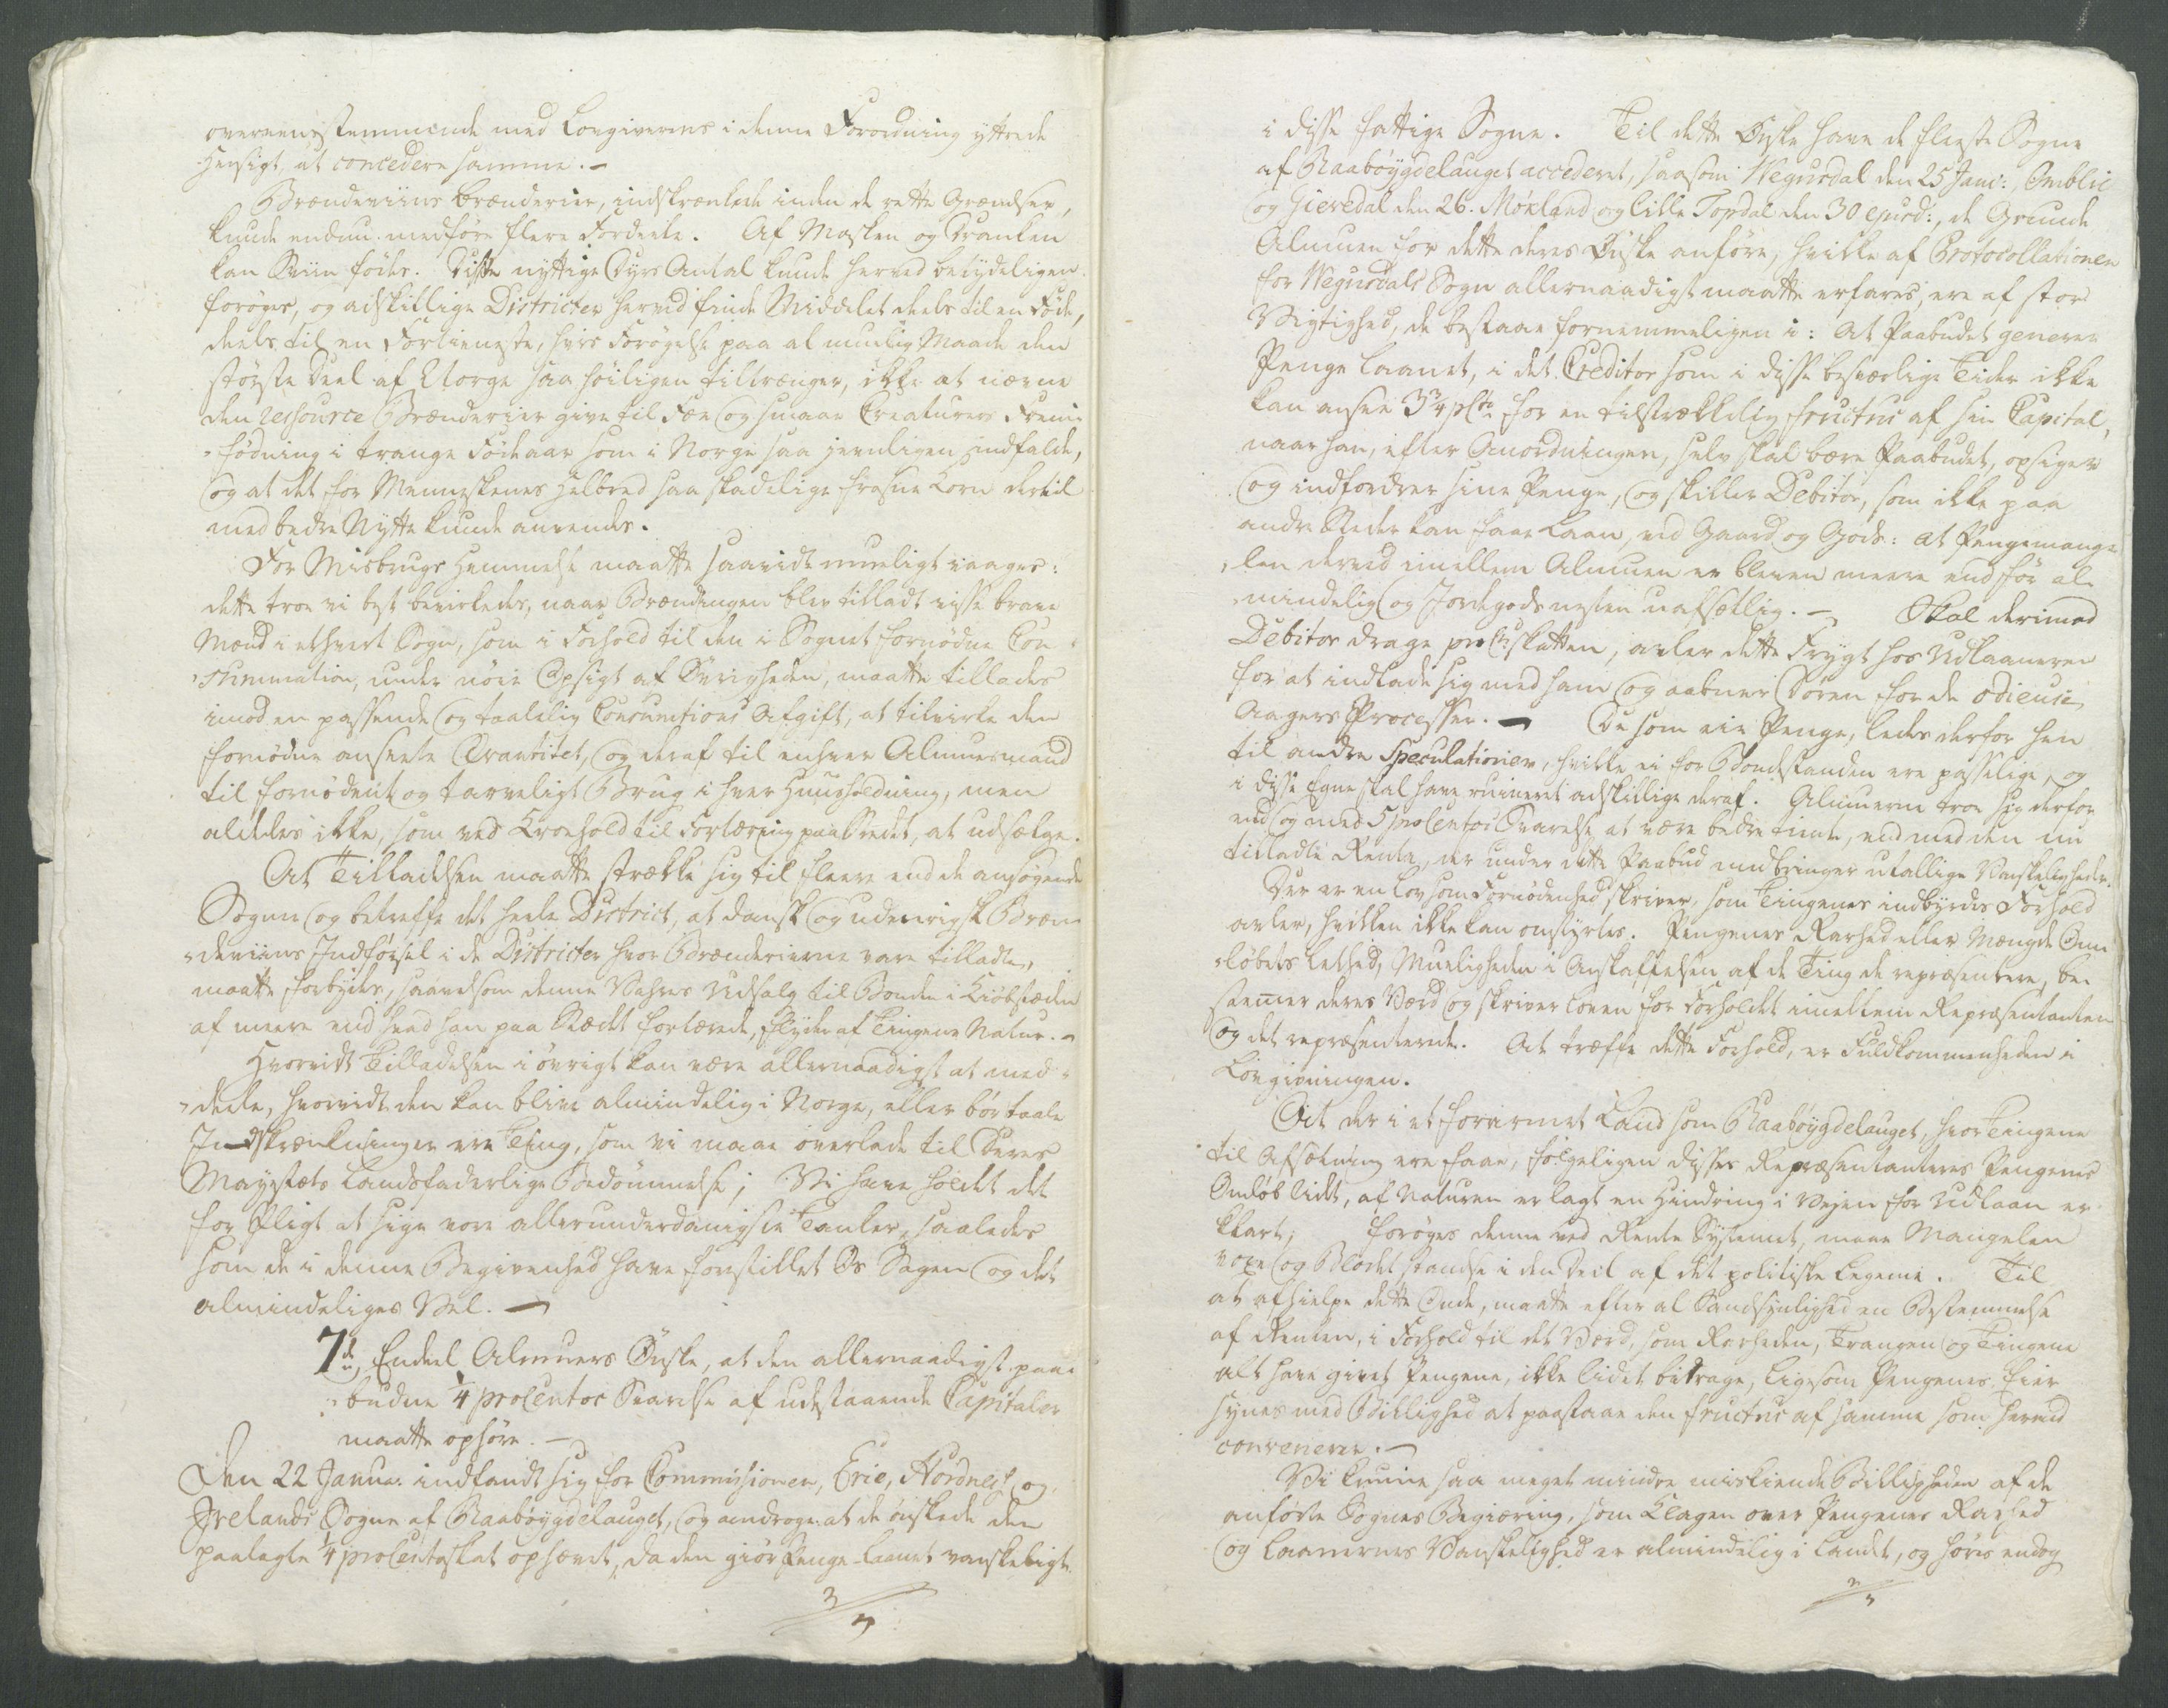 overeensstemmende med Lovgiverens i denne Forordning yttrede
Hensigt, at concedere samme. –
Brændeviins Brænderier, indskrænkede inden de rette Grændser,
kunde endnu medføre flere Fordeele. Af Masken og Dranken
kan Sviin fødes. Disse nyttige Dyrs Antal kunde herved betydeligen
forøges, og adskillige Districter herved finde Middelet deels til en Føde,
deels til en Fortieneste, hvis Forøgelse paa al muelig Maade den
største Deel af Norge saa høiligen tiltrænger, ikke at nævne
den ressource Brænderier give til Fæe og smaae Creaturers Frem-
fødning i trange Fødeaar som i Norge saa jevnligen indfalde,
og at det for Menneskenes Helbred saa skadelige frosne Korn dertil
med bedre Nytte kunde anvendes.
For Misbrugs Hemmelse maatte saavidt mueligt vaages:
dette troe vi best bevirkedes, naar Brændingen blev tilladt visse brave
Mænd i ethvert Sogn, som i Forhold til den i Sognet fornødne Con-
summation, under nøie Opsigt af Øvrigheden, maatte tillades
imod en passende og taalelig Consumtions Afgift, at tilvirke den
fornødne ansatte Qvantitet, og deraf til enhver Almuesmand
til fornødent og tarveligt Brug i hver Huusholdning, men
aldeles ikke, som ved Kroehold til Fortæring paa Stedet, at udsælge.
At Tilladelsen maatte strække sig til fleere end de ansøgende
Sogne og betreffe det heele District, at dansk og udenrigsk Bræn-
deviins Indførsel i de Districter hvor Brænderierne vare tilladte,
maatte forbydes, saavelsom denne Vahres Udsalg til Bonden i Kiøbstæden
af meere end hvad han paa Stædet fortærede, flyder af Tingenes Natur. –
Hvorvidt Tilladelsen i øvrigt kan være allernaadigst at med-
dele, hvorvidt den kan blive almindelig i Norge, eller bør taale
Indskrænkninger ere Ting, som vi maae overlade til Deres
Mayestæts Landsfaderlige Bedømmelse; Vi have holdt det
for Pligt at sige vore allerunderdanigste Tanker, saaledes
som de i denne Begivenhed have forestillet Os Sagen og det
almindeliges Vel. –
7de, Endeel Almuers Ønske, at den allernaadigst paa-
budne 1/4 procentos Svarelse af udestaaende Capitaler
maatte ophøre. –
Den 22 Janua: indfandt sig for Commissionen, Evie, Hordnes og
Ivelands Sogne af Raabøygdelauget, og androge at de ønskede den
paalagte 1/4 procentoskat ophævet, da den giør Penge-Laanet vanskeligt
i disse fattige Sogne. Til dette Ønske have de fleeste Sogne
af Raabøygdelauget accederet, saasom Wegusdal den 25 Janv:, Omblie
og Gieredal den 26. Mökland og lille Topdal den 30 ejusd:, de Grunde
Almuen for dette deres Ønske anføre, hvilke af Protocollationen
for Wegusdals Sogn allernaadigst maatte erfares, ere af stor
Vigtighed, de bestaae fornemmeligen i: At Paabudet generer
Penge Laanet, i det Creditor som i disse besværlige Tider ikke
kan ansee 3 3/4 pCto for en tilstrækkelig fructus af sin Capital,
naar han, efter Anordningen, selv skal bære Paabudet, opsiger
og indfordrer sine Penge, og skiller Debitor, som ikke paa
andre Steder kan faae Laan, ved Gaard og Gods: At Pengemange-
len derved imellem Almuen er bleven meere end før al-
mindelig og Jordegods nesten uafsættelig. – Skal derimod
Debitor drage proCto skatten, avler dette Frygt hos Udlaaneren
for at indlade sig med ham og aabner Døren for de odieuse
Aagers Processer. – De som eie Penge, ledes derfor hen
til andre Speculationer, hvilke ei for Bondestanden ere passelige, og
i disse Egne skal have ruineret adskillige deraf. Almuerne troe sig derfor
endog med 5 procentos Svarelse at være bedre tient, end med den nu
tilladte Rente, der under dette Paabud medbringer utallige Vanskeligheder.
Der er en Lov som Fornødenhed skriver, som Tingenes indbyrdes Forhold
avler, hvilken ikke kan omstyrtes. Pengenes Rarhed eller Mængde Om-
løbets Lethed, Mueligheden i Anskaffelsen af de Ting de repræsentere, be-
stemmer deres Værd og skriver Loven for Forholdet imellem Repræsentanten
og det repræsenterede. At træffe dette Forhold, er Fuldkommenheden i
Lovgivningen.
At der i et forarmet Land som Raabøygdelauget, hvor Tingene
til Afsætning ere faae, følgeligen disses Repræsentanteres Pengenes
Omløb lidet, af Naturen er lagt en Hindring i Vejen for Udlaan er
klart; forøges denne ved Rente Systemet, maae Mangelen
voxe og Blodet standse i den Deel af det politiske Legeme. Til
at afhielpe dette Onde, maatte efter al Sandsynlighed en Bestemmelse
af Renten, i Forhold til det Værd, som Rarheden, Trangen og Tingene
alt have givet Pengene, ikke lidet bidrage, ligesom Pengenes Eier
synes med Billighed at paastaae den fructus af samme som herved
convenerer. –
Vi kunne saa meget mindre miskiende Billigheden af de
anførte Sognes Begiæring, som Klagen over Pengenes Rarhed
og Laanernes Vanskelighed er almindelig i Landet, og høres endog